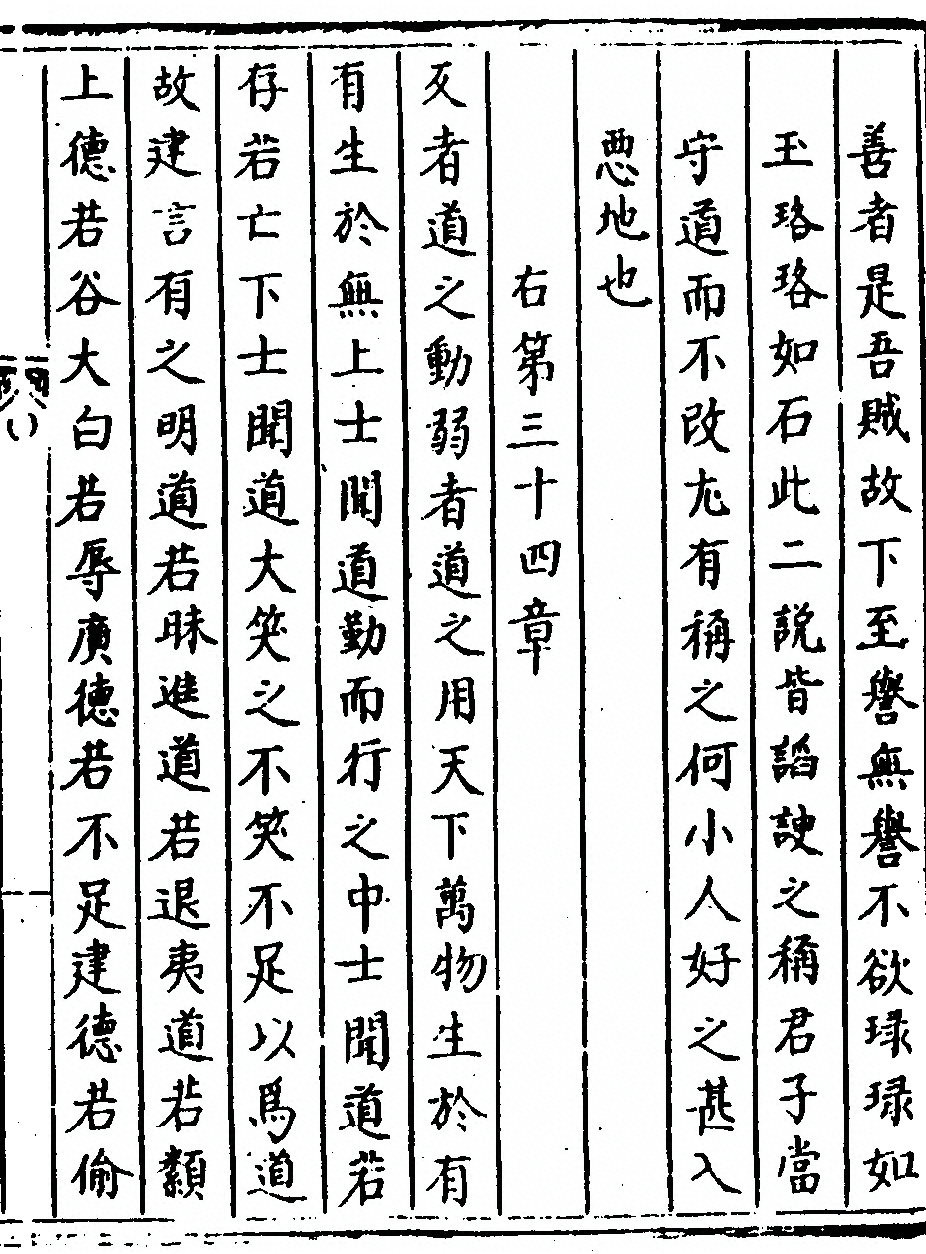 善者是吾賊故下至譽無譽不欲琭琭如
玉珞珞如石此二説皆謟諛之稱君子當
守道而不改尤有稱之何小人好之甚入
悪地也
右第三十四章
反者道之動弱者道之用天下萬物生於有
有生於無上士聞道勤而行之中士聞道若
存若亡下士聞道大笑之不笑不足以爲道
故建言有之明道若昧進道若退夷道若纇
上德若谷大白若辱廣德若不足建德若偷